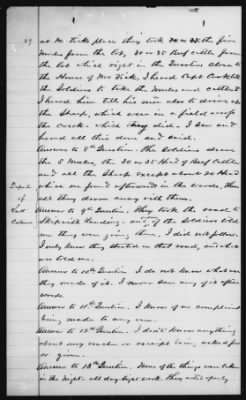 at Mr Fick's place they took the five
Mules from the lot, 30 or 35 Beef cattle from
the lot which right in the Enclosure close to
the House of Mr Fick, I heard Capt
the Soldiers to take the mules and cattle &
I heard him tell his men also to drive up
the Sheep, which were in a field across
the creek which they did. I saw and
heard all this done and said.
Answer to 8th Question. The Soldiers drove
the 5 Mules, the 30 or 35 Head of Beef Cattle
and all the Sheep except about 20 Head
which we found afterward in the woods, then
all they drove away with them.
Answer to 9th Question. They took the road to
Landing and of the Soldiers told
me they were going there. I did not follow.
I only know they started on that road, and what
was told me.
Answer to 10th Question I do not know what use
they made of it. I never saw any of it after
wards.
Answer to 11th Question. I know of no complaint
being made to any one.
Answer to 12th Question. I don't know anything
about any voucher or receipt being asked for
or given.
Answer to 13th Question. None of the things was taken
in the Night. all day light work. They acted openly
Deposit
of